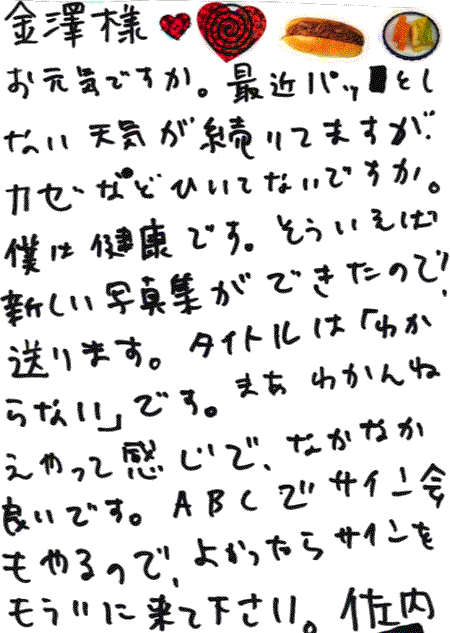 金澤様
お元気ですか。最近パッ■とし
ない天気が続いてますが、
カゼなどひいてないですか。
僕は健康です。そういえば
新しい写真集ができたので、
送ります。タイトルは「わか
らない」です。まあわかんね
えやって感じで、なかなか
良いです。ABCでサイン会
もやるので、よかったらサインを
もらいに来て下さい。佐内